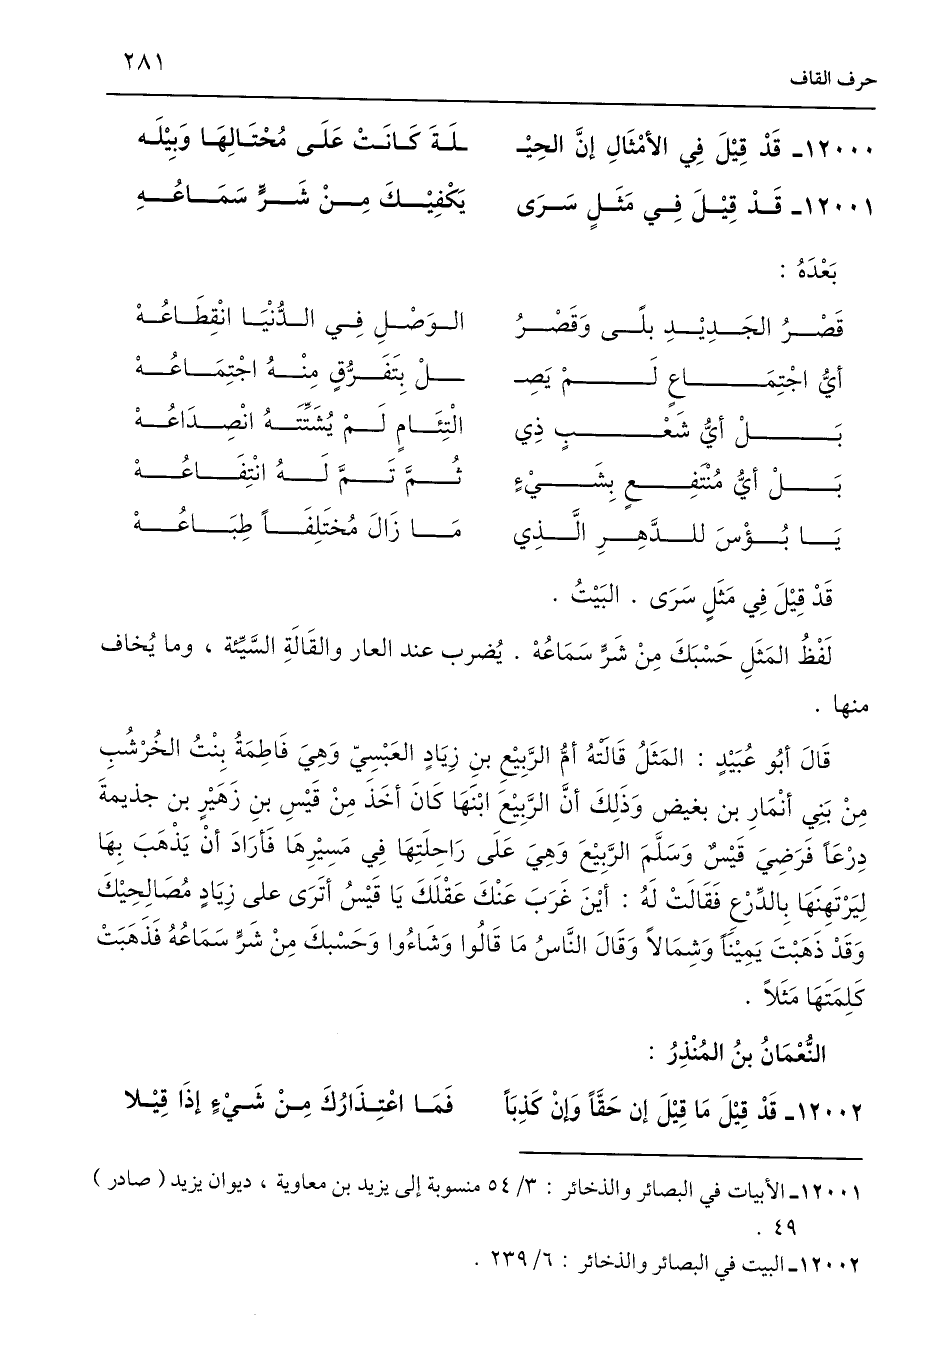 حرف القاف ٢٨١
١٢٠٠٠ـ قَدْ قِيْلَ فِي الأَمْثَالِ إنَّ الحِيْـ ـلَةَ كَانَتْ عَلَى مُحْتَالِهَا وَبِيْلَه
١٢٠٠١ـ قَدْ قِيْلَ فِي مَثَلٍ سَرَى يَكْفِيْكَ مِنْ شَرٍّ سَمَاعُهِ
بَعْدَهُ :
قَصْرُ الجَدِيْدِ بلًى وَقَصْرُ الوَصْلِ فِي الدُّنْيَا انْقِطَاعُهْ
أيُّ اجْتِمَاعٍ لَمْ يَصِـ ـلْ بِتَفَرُّقٍ مِنْهُ اجْتِمَاعُهْ
بَلْ أيُّ شَعْبٍ ذِي الْتِئَامٍ لَمْ يُشَتِّتَهُ انْصِدَاعُهْ
بَلْ أيُّ مُنْتَفِعٍ بِشَيْءٍ ثُمَّ تَمَّ لَهُ انْتِفَاعُهْ
يَا بُؤْسَ للدَّهِرِ الَّذِي مَا زَالَ مُخْتَلِفَاً طِبَاعُهْ
قَدْ قِيْلَ فِي مَثَلٍ سَرَى . البَيْتُ .
لَفْظُ المَثَلِ حَسْبَكَ مِنْ شَرٍّ سَمَاعُهْ . يُضرب عند العار والقَالَةِ السَّيِّئة ، وما يُخاف
منها .
قَالَ أبُو عُبَيْدٍ : المَثَلُ قَالَتْهُ أمُّ الرَّبِيْعِ بنِ زِيَادٍ العَبْسِيّ وَهِيَ فَاطِمَةُ بِنْتُ الخُرْشُبِ
مِنْ بَنِي أنْمَارِ بن بغيض وَذَلِكَ أنَّ الرَّبِيْعَ ابْنَهَا كَانَ أخَذَ مِنْ قَيْسِ بنِ زَهَيْرِ بن جذيمةَ
دِرْعَاً فَرَضِيَ قَيْسٌ وَسَلَّمَ الرَّبِيْعَ وَهِيَ عَلَى رَاحِلَتِهَا فِي مَسِيْرِهَا فَأرَادَ أنْ يَذْهَبَ بِهَا
لِيَرْتَهِنَهَا بِالدِّرْعِ فَقَالَتْ لَهُ : أيْنَ غَرَبَ عَنْكَ عَقْلَكَ يَا قَيْسُ أتَرَى على زِيَادٍ مُصَالِحِيْكَ
وَقَدْ ذَهَبْتَ يَمِيْنَاً وَشِمَالاً وَقَالَ النَّاسُ مَا قَالُوا وَشَاءُوا وَحَسْبكَ مِنْ شَرٍّ سَمَاعُهُ فَذَهَبَتْ
كَلِمَتَهَا مَثَلاً .
النُّعْمَانُ بنُ المُنْذِرُ :
١٢٠٠٢ـ قَدْ قِيْلَ مَا قِيْلَ إن حَقَّاً وَإنْ كَذِبَاً فَمَا اعْتِذَارُكَ مِنْ شَيْءٍ إذَا قِيْلا
١٢٠٠١ـ الأبيات في البصائر والذخائر : ٣/ ٥٤ منسوبة إلى يزيد بن معاوية ، ديوان يزيد ( صادر )
٤٩ .
١٢٠٠٢ـ البيت في البصائر والذخائر : ٦/ ٢٣٩ .